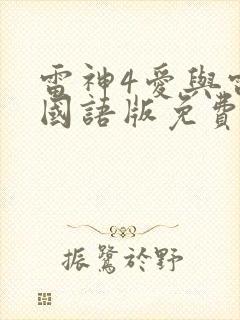 雷神4愛與
國語版免費
振鷺於野